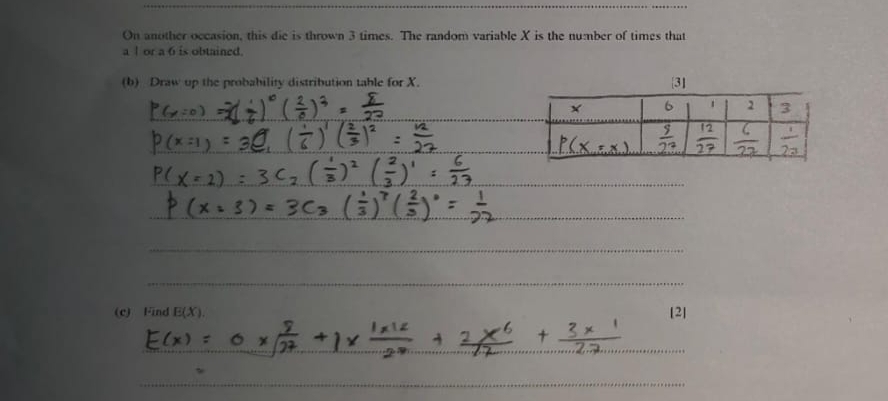 On another occasion, this die is thrown 3 times. The random variable X is the number of times that
a 1 or a 6 is obtained.
(b) Draw up the probability distribution table for X. [3]
P(x=0) = (2/3)³ = 8/27
P(x=1) = 3C₁ (2/3)² = 12/27
P(x=2) = 3C₂ (1/3)² (2/3)¹ = 6/27
P(x=3) = 3C₃ (1/3)³ (2/3)⁰ = 1/27
x 0 1 2 3
P(X=x) 8/27 12/27 6/27 1/27
(c) Find E(X). [2]
E(x) = 0 × 8/27 + 1 × 1×12/27 + 2×6/27 + 3×1/27